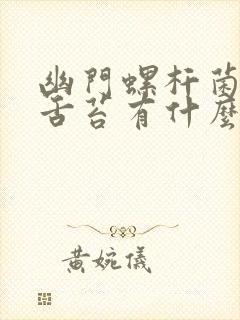 幽門螺杆菌
舌苔有什麼
黄婉儀